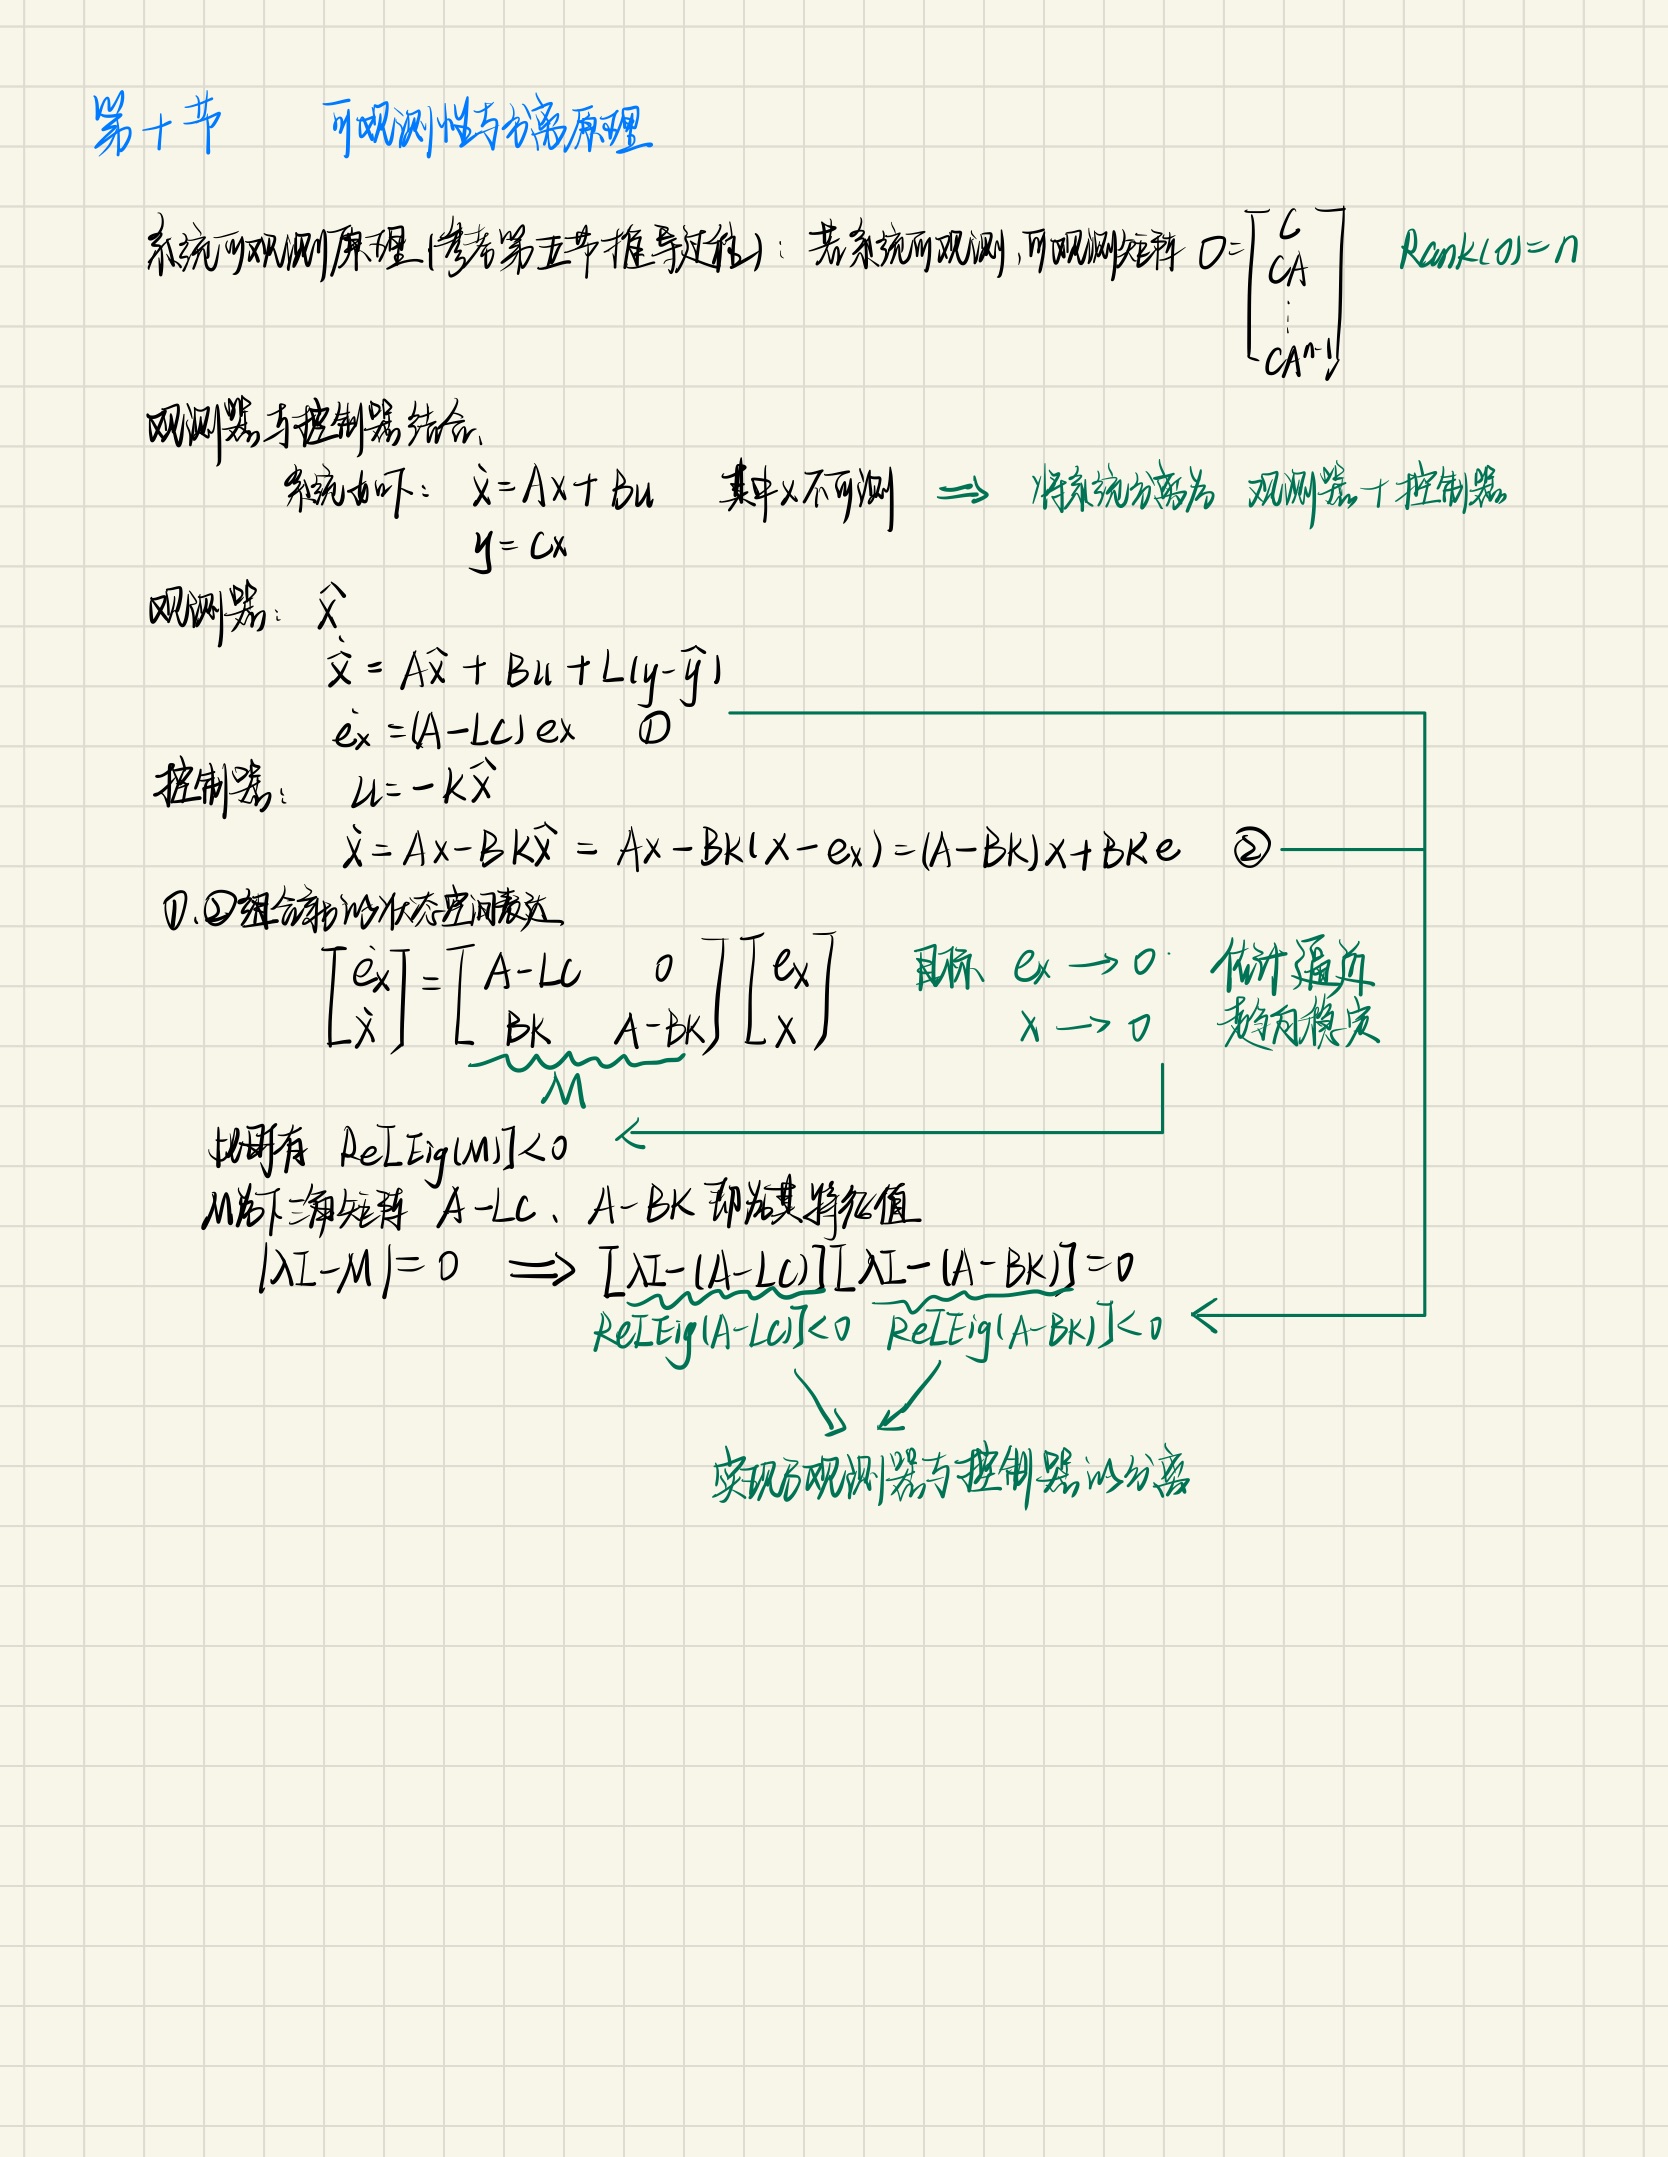 第十节 可观测性与分离原理
系统可观测原理(参考第五节推导过程): 若系统可观测,可观测矩阵 O=[C CA ⋮ CAⁿ⁻¹] Rank(O)=n
观测器与控制器结合、
系统如下: ẋ=Ax+Bu 其中x不可测 ⇒ 将系统分离为 观测器+控制器
y=Cx
观测器: x̂
x̂̇ = Ax̂ + Bu + L(y-ŷ)
ėx =(A-LC)ex ①
控制器: u=-Kx̂
ẋ=Ax-BKx̂ = Ax-BK(x-ex)=(A-BK)x+BKe ②
①.②组合新的状态空间表达
[ėx ẋ] = [A-LC 0 BK A-BK] [ex x] 目标 ex → 0 估计逼近
x → 0 趋向稳定
M
有 Re[Eig(M)]<0
M为下三角矩阵 A-LC、A-BK 即为其特征值
|λI-M|=0 ⇒ [λI-(A-LC)][λI-(A-BK)]=0
Re[Eig(A-LC)]<0 Re[Eig(A-BK)]<0
实现了观测器与控制器的分离